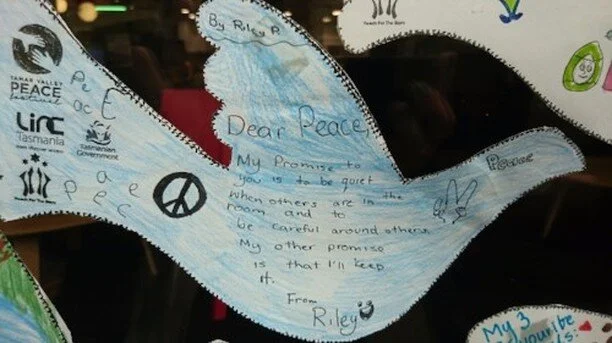 By Riley P.
TAMAR VALLEY
PEACE
Festival
LINC
Tasmania
Tasmanian
Government
Pe
ac E
Pea
Pec
e
Dear Peace,
My Promise to
you is to be quiet
when others are in the
room and to
be careful around others.
My other promise
is that I'll keep
it.
From
Riley
Peace
My 3